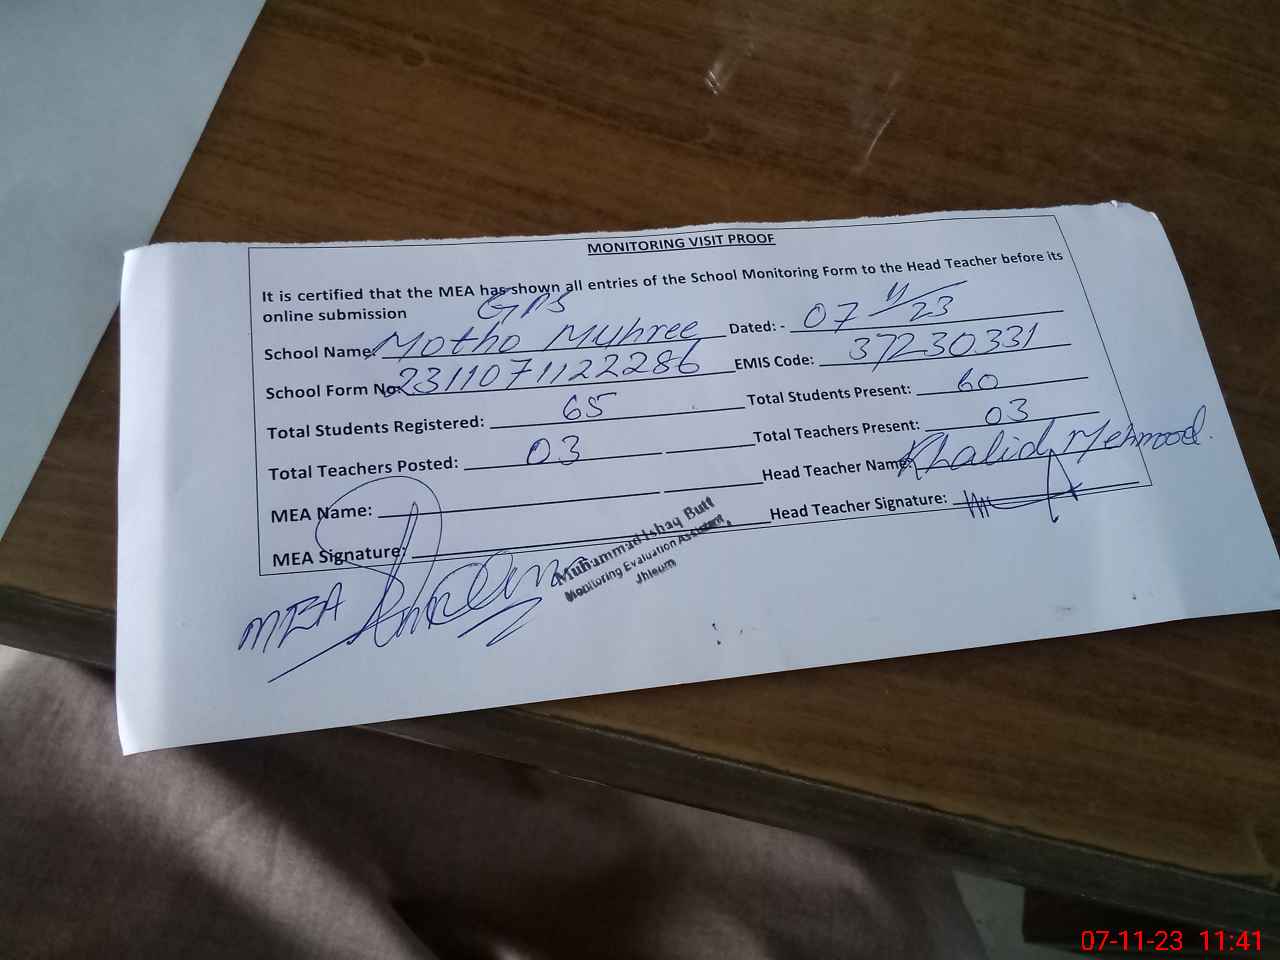 MONITORING VISIT PROOF
It is certified that the MEA has shown all entries of the School Monitoring Form to the Head Teacher before its
online submission
GPS
School Name: Motho Muhree Dated: - 07/11/23
School Form No: 2311071122286 EMIS Code: 37230331
Total Students Registered: 65 Total Students Present: 60
Total Teachers Posted: 03 Total Teachers Present: 03
MEA Name: Head Teacher Name: Khalid Mehmood.
MEA Signature: Head Teacher Signature:
MEA
Muhammad Ishaq Butt
Monitoring Evaluation Assistant,
Jhleum
07-11-23 11:41